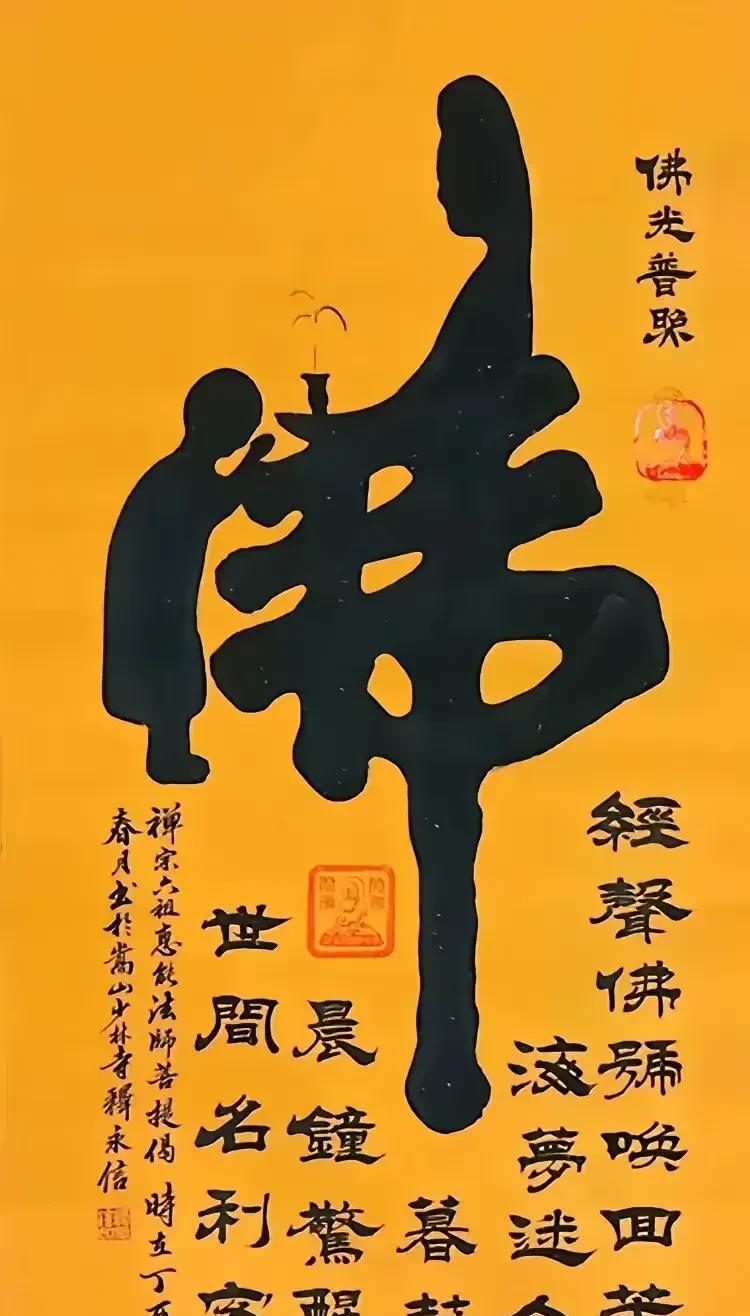 佛光普照
佛
經聲佛號喚回苦
海夢迷
暮鼓
晨鐘驚醒
世間名利客
禅宗六祖惠能法師菩提偈 時在丁酉
春月书於嵩山少林寺釋永信